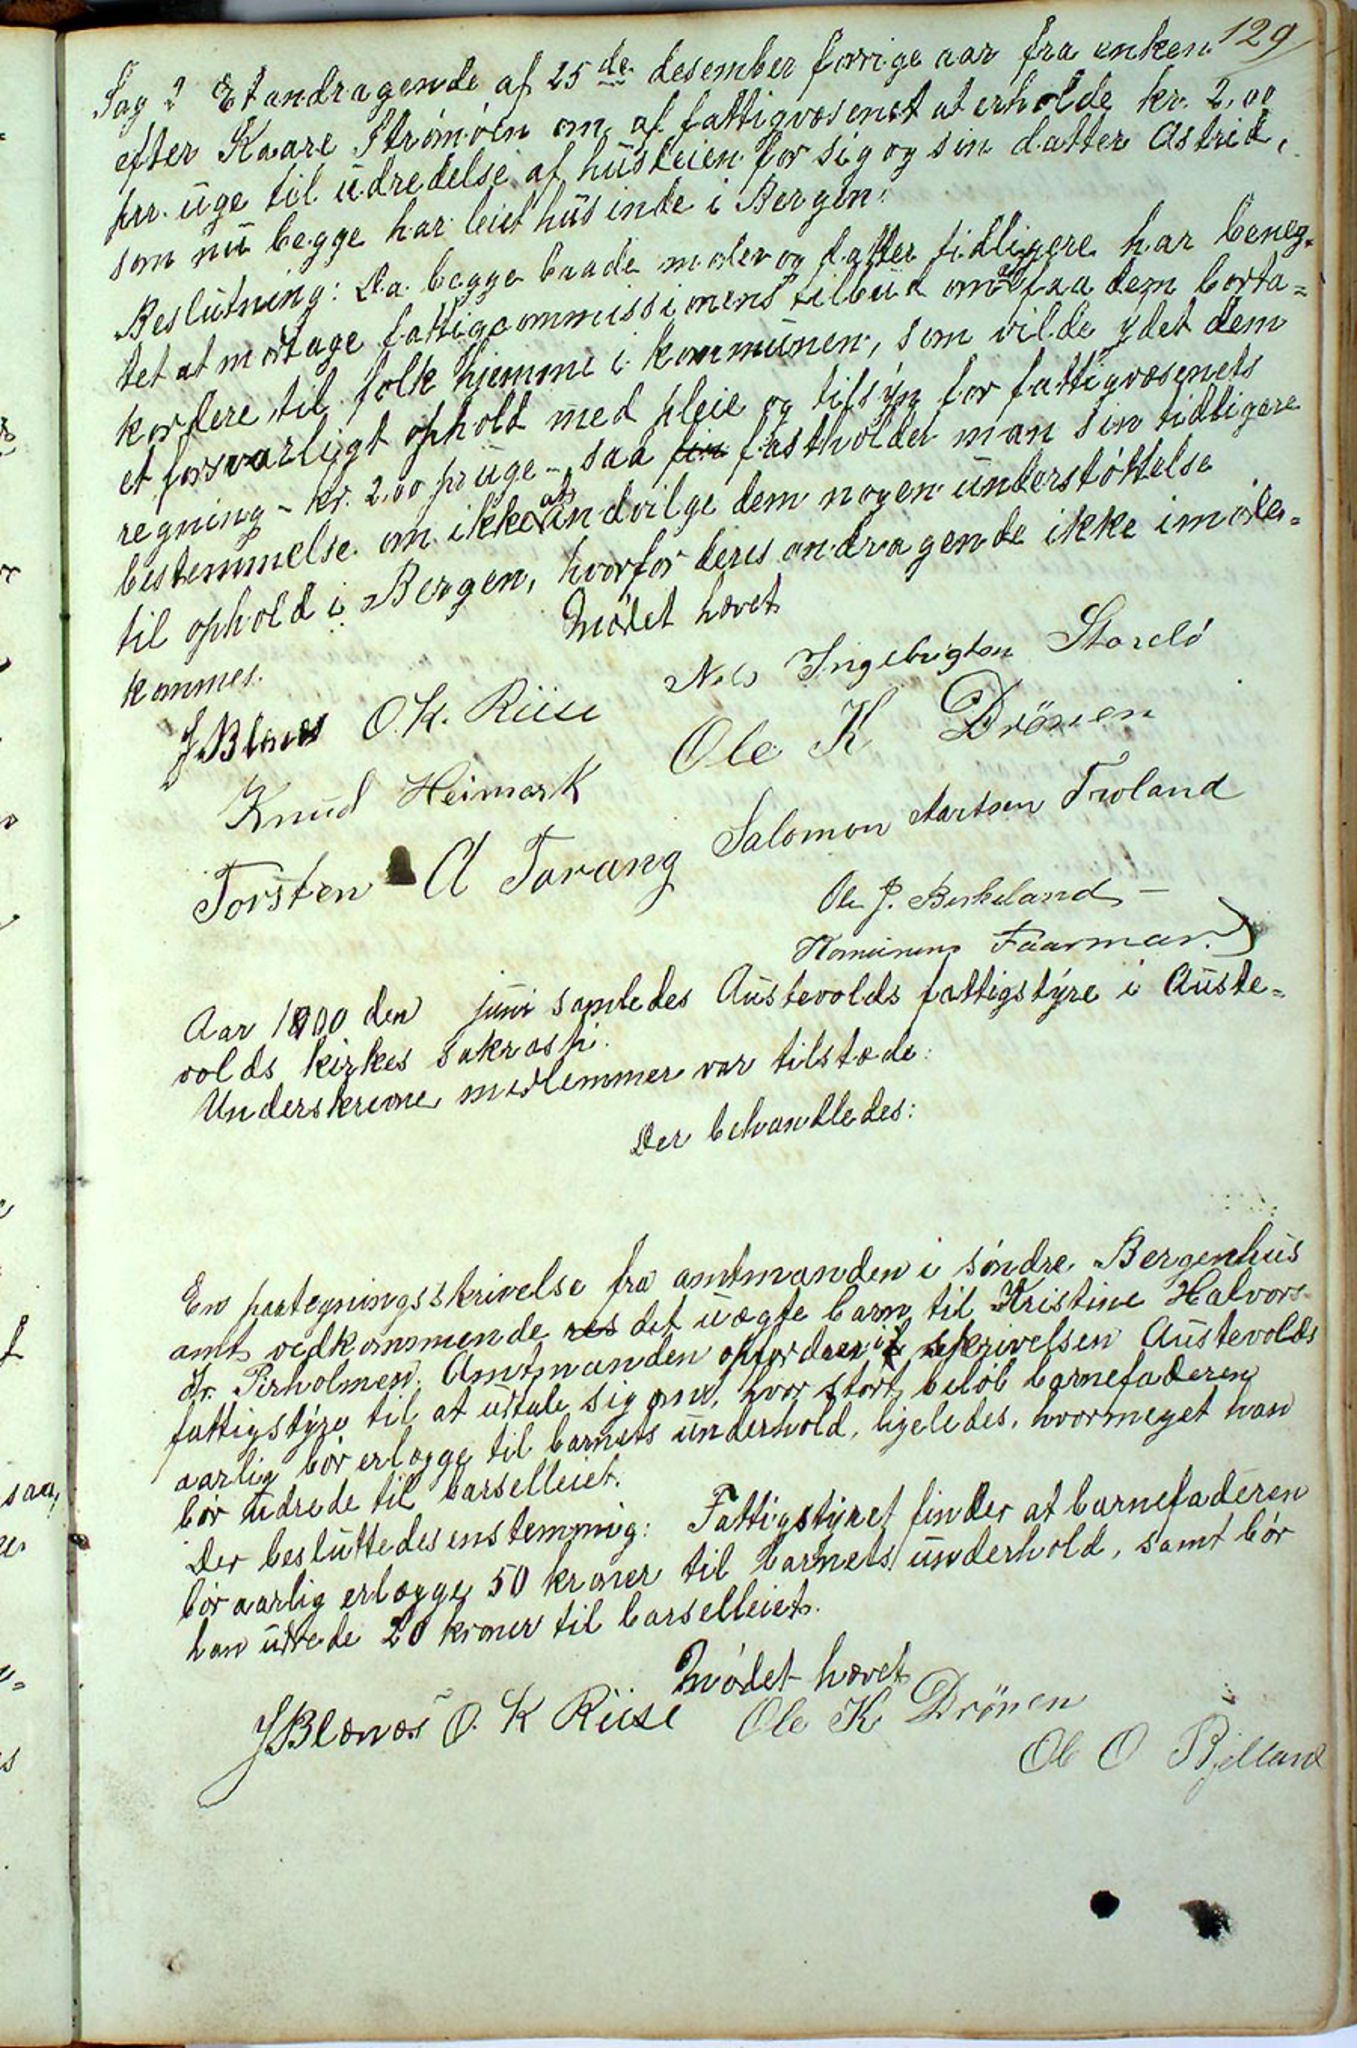 129
Sag 2 Et andragende af 25de desember forrige aar fra enken
efter Kaare Strømøen om af fattigvæsenet at erholde kr. 2,00
prr. uge til udredelse af husleien for sig og sin datter Astrid,
som nu begge har leiet hus inde i Bergen.
Beslutning: Da begge baade moder og datter tidligere har beneg-
tet at modtage fattigcommissionens tilbud om at faa dem borta-
kordere til folk hjemme i kommunen, som vilde ydet dem
et forsvarligt ophold med pleie og tilsyn for fattigvæsenets
regning - kr. 2,00 pr uge - saa fastholder man sin tidligere
bestemmelse om ikke at indvilge dem nogen understøttelse
til ophold i Bergen, hvorfor deres andragende ikke imøde-
kommes.
Mødet hævet
J Blænes O. K. Riise Nels Ingebrigtsen Storebø
Knud Heimark Ole K Drönen
Torsten A Torang Salomon Aartsen Troland
Ole J. Birkeland
Aar 1900 den juni samledes Austevolds fattigstyre i Auste-
volds kirkes sakrasti.
Underskrevne medlemmer var tilstæde:
Der behandledes:
En paategningsskrivelse fra amtmanden i søndre Bergenhus
amt vedkommende det uægte barn til Kristine Halvors-
dr. Pirholmen. Amtmanden opfordrer i skrivelsen Austevolds
fattigstyre til at udtale sig om, hvor stort beløb barnefaderen
aarlig bør erlægge til barnets underhold, ligeledes, hvormeget han
bør udrede til barselleiet.
Der besluttedes enstemmig: Fattigstyret finder at barnefaderen
bør aarlig erlægge 50 kroner til barnets underhold, samt bør
han udrede 20 kroner til barselleiet.
Mødet hævet
J Blænæs O. K Riise Ole K Drönen
Ole O Bjelland